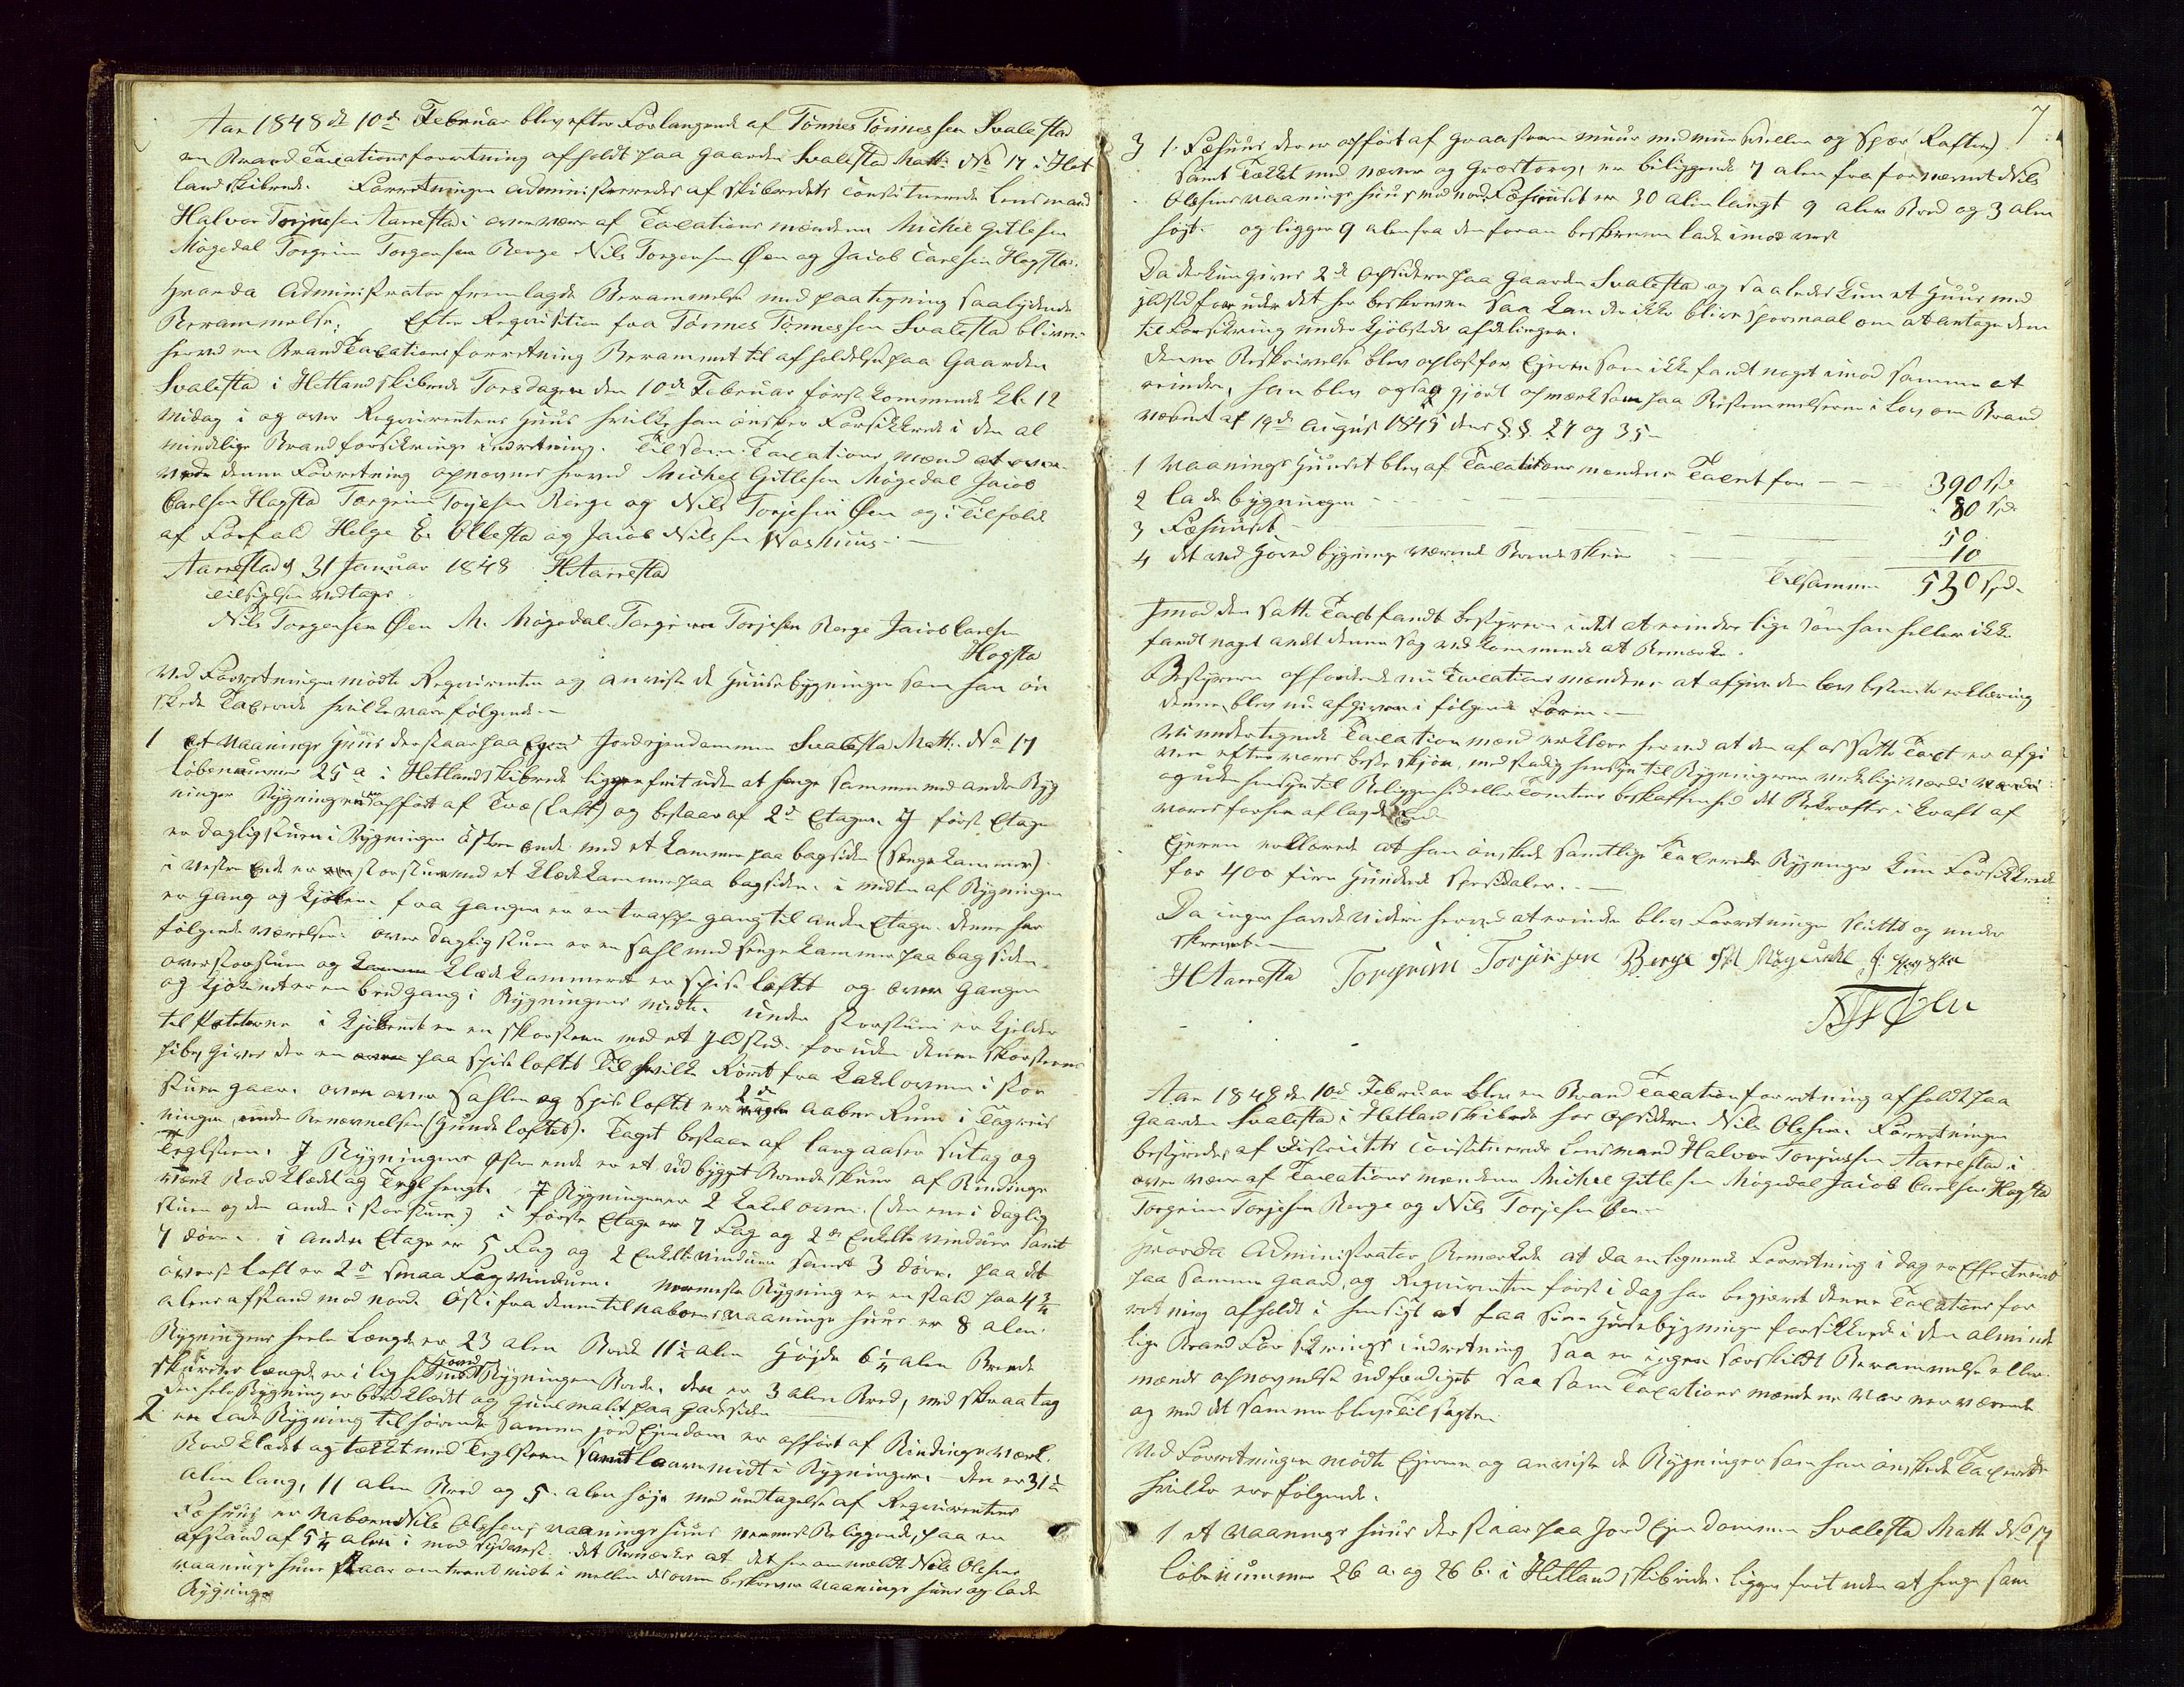 Aar 1848 d 10de Februar blev efter Forlangende af Tønnes Tønnessen Svalestad
en Brand Taxationsforretning afholdt paa Gaarden Svalestad Matt: No 17 i Het
landskibrede. Forretningen administreredes af skibredets constituerede Lensmand
Halvor Torjussen Aarrestad i overvær af Taxationsmændene Michel Gitlesen
Møgedal Torgrim Torgersen Berge Nils Torgersen Øen og Jacob Carlsen Hogstad.
Hvorda Administrator fremlagde Berammelse med paategning saalydende
Berammelse; Efter Reqvisition fra Tønnes Tønnessen Svalestad bliver
herved en Brand Taxationsforretning Berammet til afholdelse paa Gaarden
Svalestad i Hetlandskibrede Torsdagen den 10de Februar først kommende Kl. 12
Midag i og over Reqvirentens Huus hvilke han ønsker Forsikkrede i den al
mindelige Brandforsikrings indretning. Til som Taxations mænd at over-
være denne Forretning opnævnes herved Michel Gitlesen Møgedal Jacob
Carlsen Hogstad Torgrim Torjesen Berge og Nils Torjesen Øen og i Tilfælde
af Forfald Helge E. Ollestad og Jacob Nilssen Washuus.
Aarrestad d 31 Januar 1848 HAarrestad
tilsigelsen vedtages
Nils Torgersen Øen M. Møgedal. Torgrim Torjesen Berge Jacob Carlsen
Hogstad
Ved Forretningen mødte Reqvirenten og anviste de Huusebygninger som han øn
skede Taxerede hvilke vare følgende.
1 et Vaanings Huus der staar paa Jordejendommen Svalestad Matt. No 17
Løbenummer 25 a i Hetlandskibrede ligger frit uden at henge sammen med andre Byg
ninger Bygningen er opført af Træ (Laft) og bestaar af 2de Etager. I først Etage
er daglig stuen i Bygningen østre ende med et Kammer paa bagsiden (Senge kammer).
i vestre Ende er storstuen med et Klædekammer paa bagsiden. i midten af Bygningen
er Gang og Kjøken. fra Gangen er en trappe gang til anden Etage. denne har
følgende værelser. over dagligstuen er en Sahl med senge kammer paa bagsiden.
over storstuen og Klædekammeret er spise loftet og over Gangen
og Kjøkenet er en bredgang i Bygningens midte. under storstuen er Kjelder
til Poteterne i Kjøkenet er en skorsteen med et Ildsted. foruden denne skorsteens
pibe, gives der en paa spiseloftet til hvilke Røret fra Kakelovnen i stor
stuen gaar. over Sahlen og Spise loftet er 2de aabne Rum i Tagreis
ningen under Benævnelsen (Hunde loftet). Taget bestaar af langaaser sutag og
Teglsteen. I Bygningens Østre ende er et udbygget Brendeskuur af Bindings
værk Bord klædt og Teglhengt. I Bygningen er 2 Kakelovne. (den ene i daglig
stuen og den anden i storstuen) i første Etage er 7 Fag og 2de Enkelte vinduer samt
7 døre. i anden Etage er 5 Fag og 2 Enkelte vinduer samt 3 døre. paa det
øverste loft er 2de smaa Fag vinduer. nermeste Bygning er en stald paa 4¾
alens afstand mod nord Øst ifra denne til naboens vaanings huus er 8 alen.
Bygningens heele Længde er 23 alen Bred 11½ alen Højde 6¼ alen Brende
skurets længde er i lighed med Hoved Bygningen Brede. den er 3 alen Bred, med skraatag
den hele Bygning er bordklædt og Guulmalet paa Gadesiden
2 en Lade Bygning tilhørende samme jord Ejendom er opført af Bindings værk.
Bord klædt og takket med Teglsteen samt laaven midt i Bygningen. den er 31½
alen lang, 11 alen Bred og 5 alen høje med undtagelse af Reqvirentens
Fæhuus er Naboen Nils Olsens vaaningshuus nermest Beliggende, paa en
afstand af 5¼ alen i mod Sydvest. det Bemærkes at det her ommeldte Nils Olsens
vaanings huus staar omtrent midt i mellem de oven beskrevne vaanings huus og lade
Bygning
7
3 1. Fæhuus der er opført af Graasteen muur med muurstiller og Sper (Rafter)
samt Tækket med næver og Græstorv, er beliggende 7 alen fra fornevnt Nils
Olsens vaanings huus mod nord Fæhuuset er 30 alen langt 9 alen Bred og 3 alen
højt. og ligger 9 alen fra den foran beskrevne lade imod vest
Da der kun gives 2de Opsiddere paa Gaarden Svalestad og saaledes kun et Huus med
ildsted foruden det her beskrevne saa kan der ikke blive spørsmaal om at antage dem
til Forsikring under Kjøbstads afdelingen.
denne Beskrivelse blev oplæst for Ejeren som ikke fandt noget imod samme at
erindre, han blev ogsaa gjort opmærksom paa Bestemmelserne i Lov om Brand
væsenet af 19de August 1845 dens §§. 27 og 35
1 Vaanings Huuset blev af Taxationsmændene Taxert for 390 Spd
2 lade bygningen 80 Spd
3 Fæhuuset 50
4 det ved Hovedbygningen værende Brendeskuur 10
Tilsammen 530 Spd.
Imod den satte Taxt fandt Bestyreren intet at erindre lige som han heller ikke
fandt noget andet denne sag vedkommende at Bemærke.
Bestyreren opfordrede nu Taxations mændene at afgive den lov bestemte erklæring
denne blev nu afgiven i følgende Form.
Vi undertegnede Taxations mænd erklære herved at den af os satte Taxt er afgi
ven efter vores beste skjøn, med stadig hensyn til Bygningernes virkelige værdi
og uden hensyn til Beliggenhed eller Tomtens beskaffenhed det Bekræftes i kraft af
vores forhen aflagde Eed
Ejeren erklærede at han ønskede samtlige Taxerede Bygninger kun Forsikkrede
for 400 fire Hundrede Spesidaler.
Da ingen havde videre herved at erindre blev Forretningen sluttet og under
skrevet.
HAarrestad Torgrim Torjesen Berge M Møgedal J: Hogstad
N T Øen
Aar 1848 den 10de Februar blev en Brand Taxationsforretning afholdt paa
Gaarden Svalestad i Hetlandskibrede hos Opsidderen Nils Olsen. Forretningen
bestyredes af Districtets constituerede Lensmand Halvor Torjussen Aarrestad i
overvær af Taxations mændene Michel Gitlesen Møgedal Jacob Carlsen Hogstad
Torgrim Torjesen Berge og Nils Torjesen Øen
Hvorda Administrator Bemærkede at da en lignende Forretning i dag er Effectueret
paa samme Gaard, og Reqvirenten først i dag har begjæret denne Taxations for
retning afholdt i hensigt at faa sine Huusebygninger forsikkrede i den almind
lige Brand Forsikrings indretning saa er ingen særskildt Berammelse eller
mænds opnævnelse udferdiget saa som Taxations mændene var nerværende
og med det samme bleve Tilsagte.
Ved Forretningen mødte Ejeren og anviste de Bygninger som han ønskede Taxerede
hvilke ere følgende.
1 et Vaanings huus der staar paa Jord Ejendommen Svalestad Matt No 17
løbenummer 26 a. og 26 b. i Hetlandskibrede. ligger frit uden at henge sam